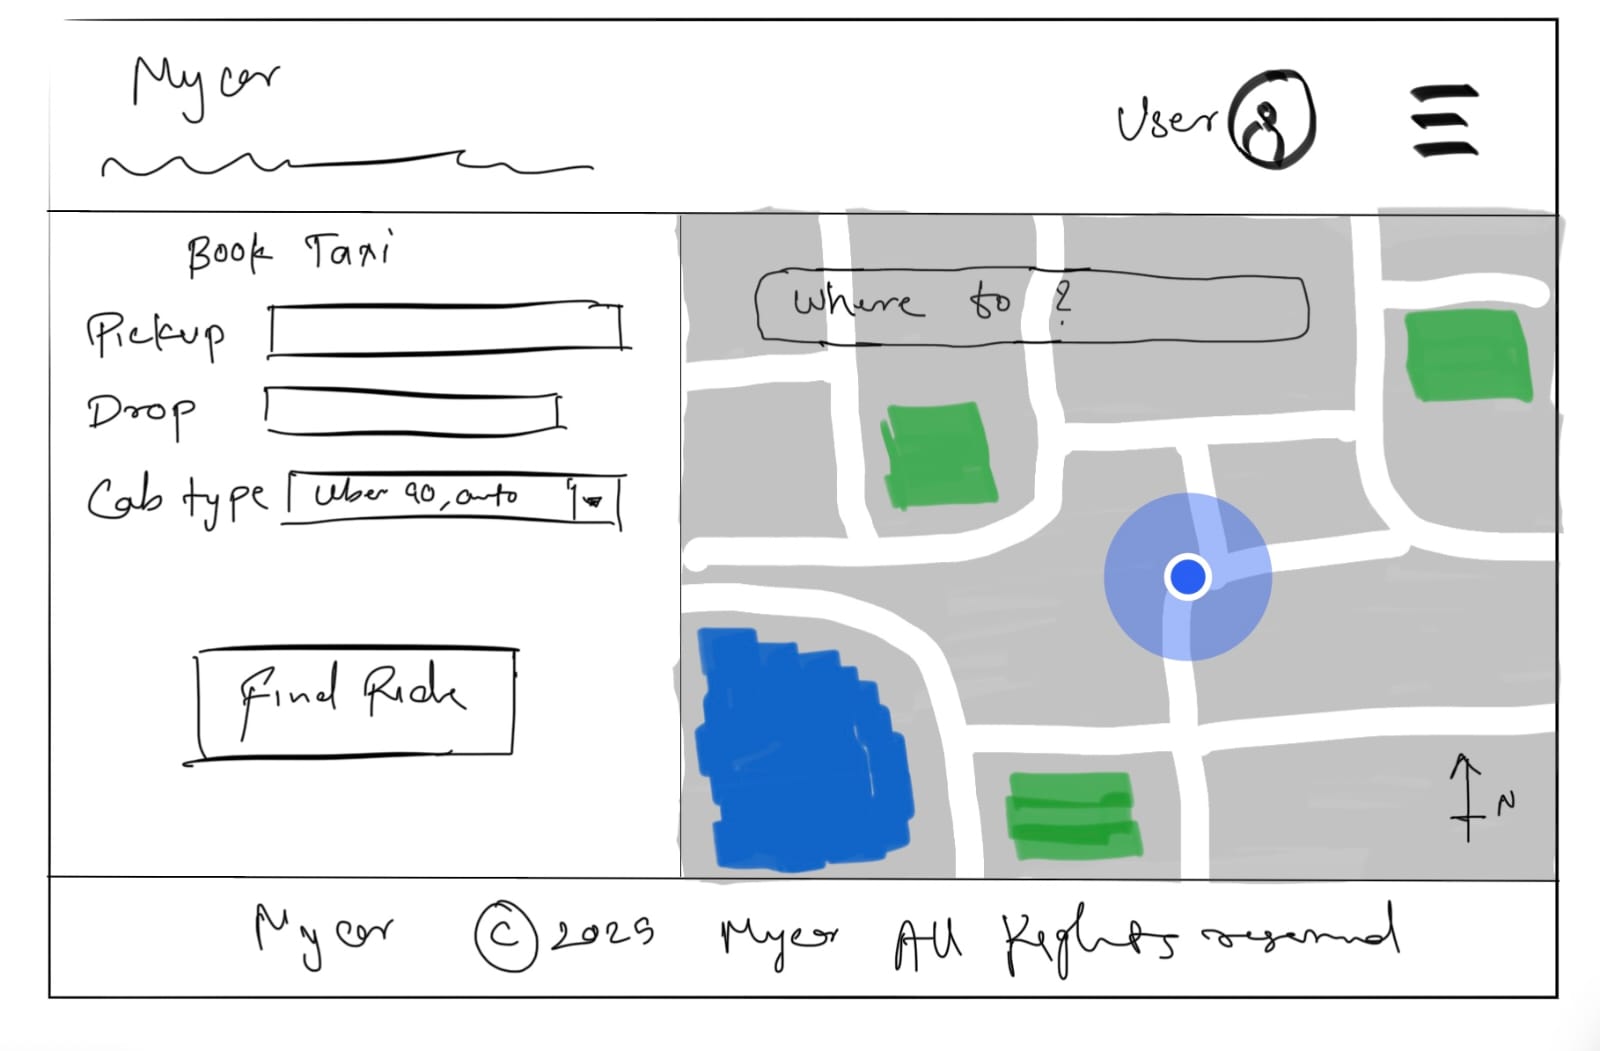 My car
User
Book Taxi
Pickup
Drop
Cab type Uber go, auto
Find Ride
Where to ?
N
My car © 2025 Mycar All Rights reserved